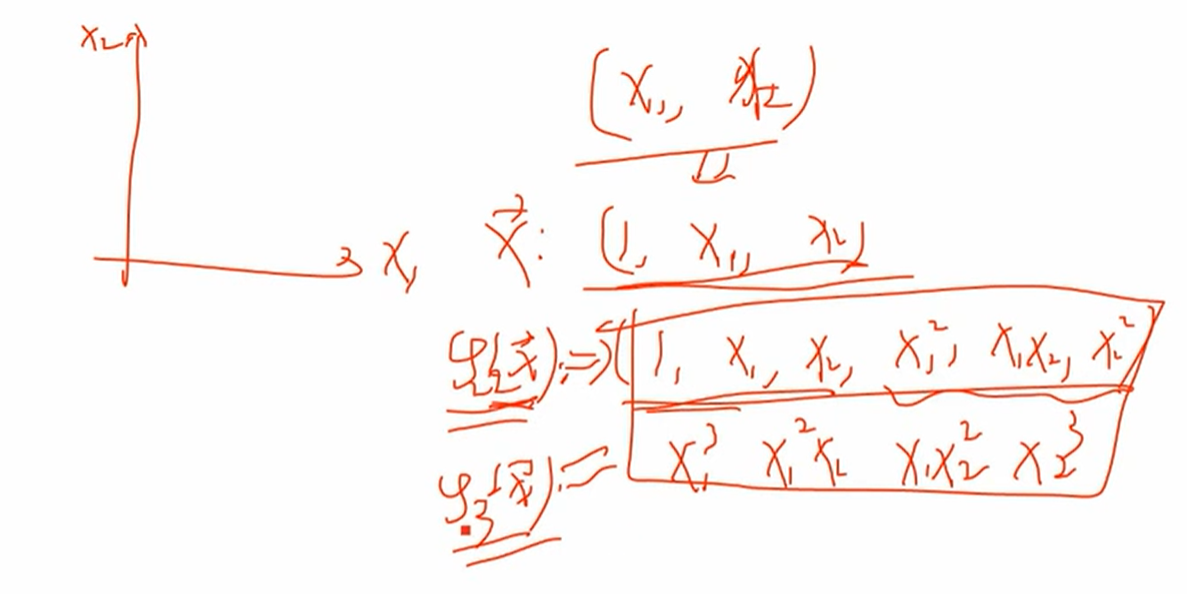 x₂
(x₁, x₂)
x₁
x⃗: (1, x₁, x₂)
φ₂(x⃗):=>(1, x₁, x₂, x₁², x₁x₂, x₂²)
φ₃(x⃗):= x₁³ x₁²x₂ x₁x₂² x₂³